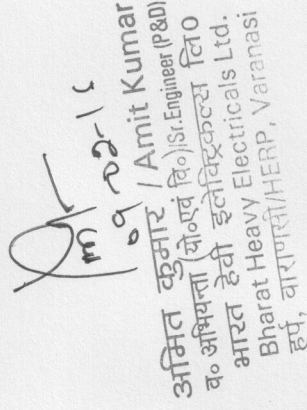 09-02-16
अमित कुमार / Amit Kumar
व० अभियन्ता (यो०एवं वि०)/Sr.Engineer (P&D)
भारत हेवी इलेक्ट्रिकल्स लि०
Bharat Heavy Electricals Ltd.
हर्प, वाराणसी/HERP, Varanasi